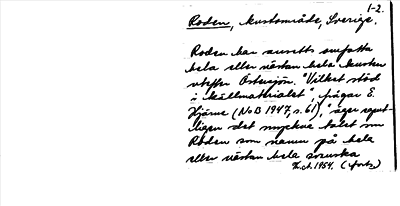 1-2.
Roden, kustområde, Sverige.
Roden har ansetts omfatta
hela eller nästan hela kusten
utefter Östersjön. "Vilket stöd
i källmaterialet", frågar E.
Hjärne (NoB 1947, s. 61), "äger egent-
ligen det myckna talet om
Roden som namn på hela
eller nästan hela svenska
1954. (forts)